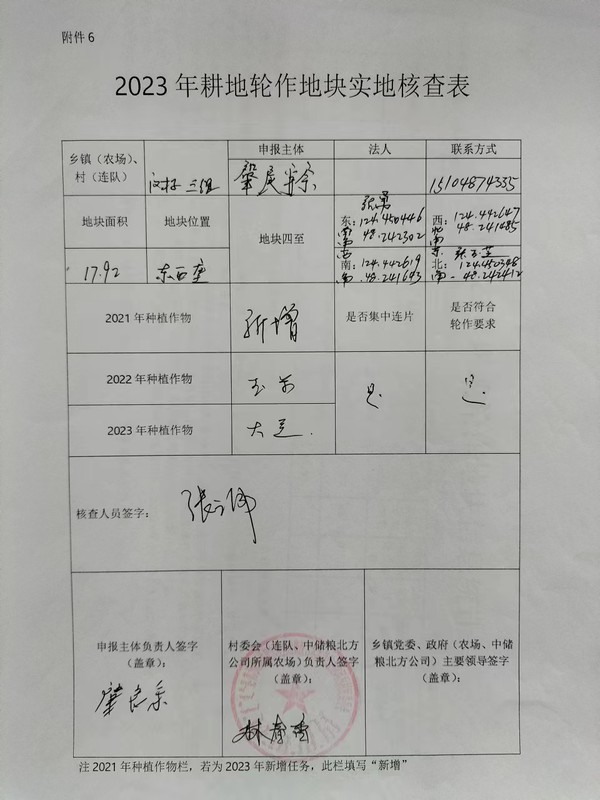 附件 6
2023 年耕地轮作地块实地核查表
乡镇（农场）、
村（连队）
三组
申报主体
法人
联系方式
15104874335
地块面积
地块位置
地块四至
张勇
东：124.450446
48.242302
西：124.442647
48.241485
南：124.442619
48.241643
北：124.450348
48.242412
17.92
2021 年种植作物
新增
是否集中连片
是否符合
轮作要求
2022 年种植作物
玉米
是
是
2023 年种植作物
大豆
核查人员签字：
张
申报主体负责人签字
（盖章）：
村委会（连队、中储粮北方
公司所属农场）负责人签字
（盖章）：
林
乡镇党委、政府（农场、中储
粮北方公司）主要领导签字
（盖章）：
注 2021 年种植作物栏，若为 2023 年新增任务，此栏填写“新增”